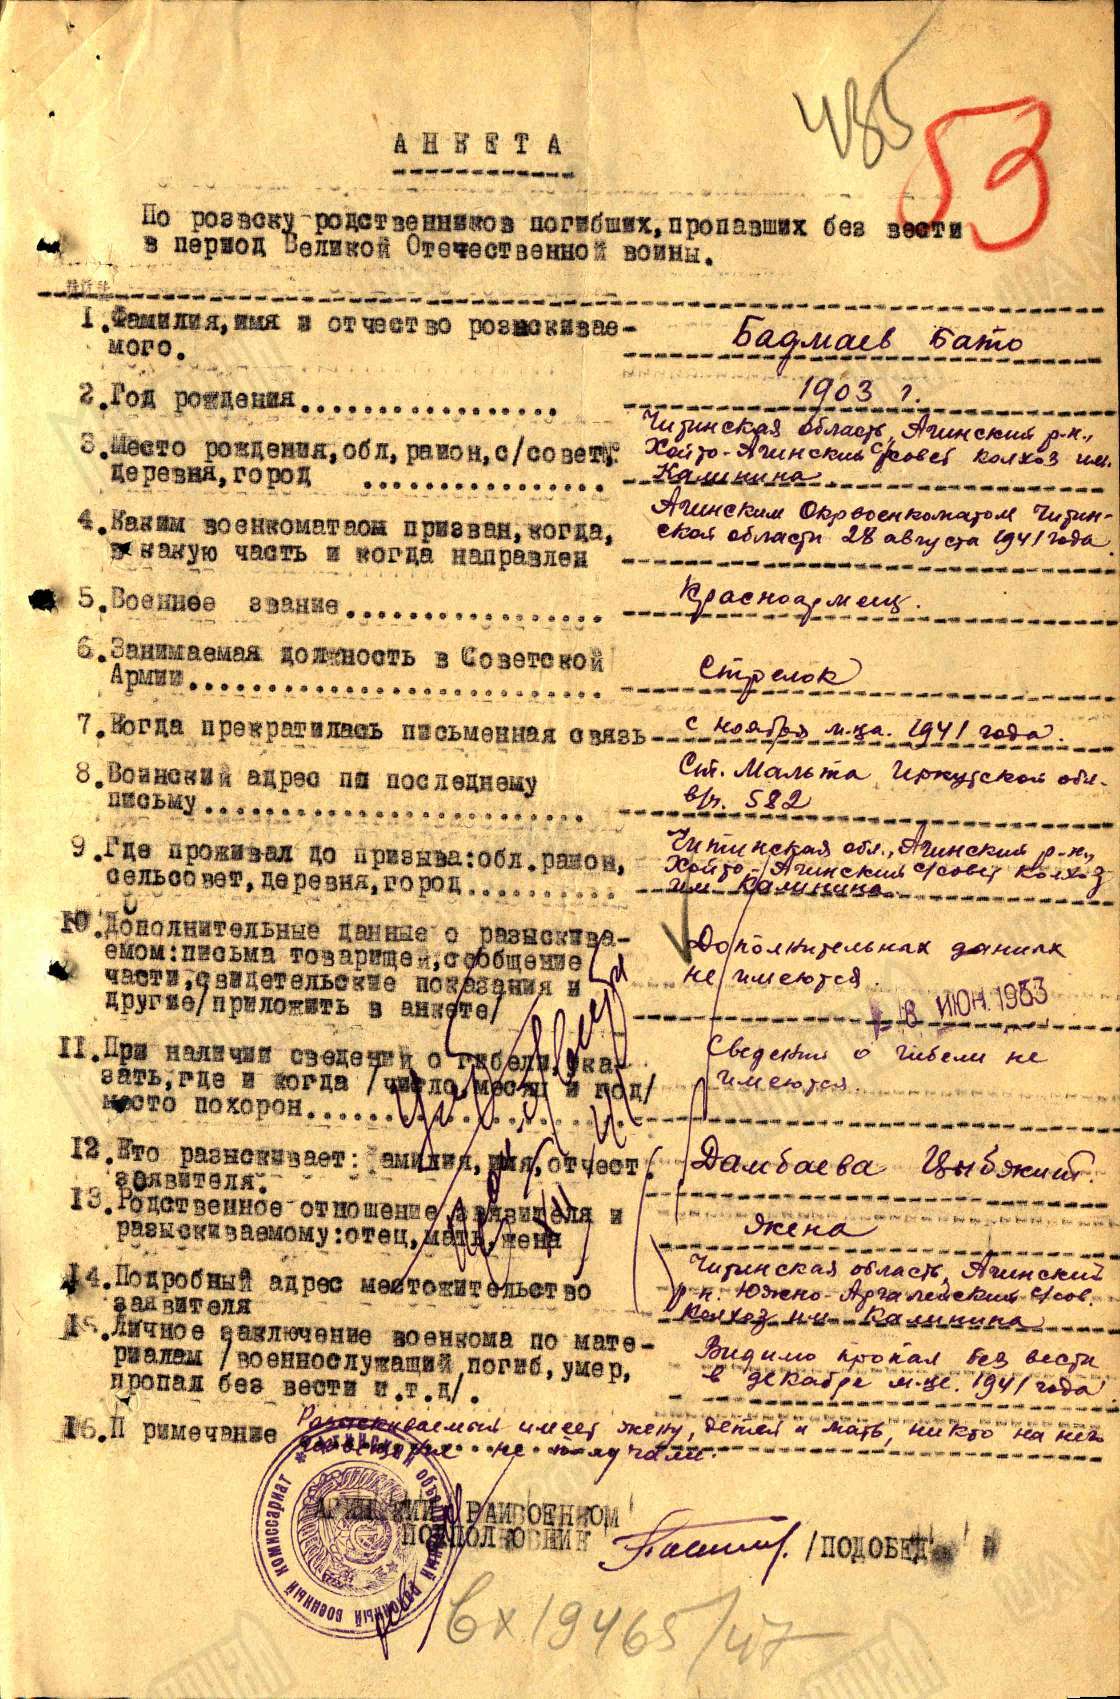 485
53
АНКЕТА
По розвску родственников погибших, пропавших без вести
в период Великой Отечественной воины.
1. Фамилия, имя и отчество розыскивае-
мого.
Бадмаев Бато
2. Год рождения..................
1903 г.
3. Место рождения, обл, раион, с/совет,
деревня, город .................
Читинская область, Агинский р-н.,
Хойто-Агинский с/совет колхоз им.
Калинина
4. Каким военкоматаом призван, когда,
в какую часть и когда направлен
Агинским Окрвоенкоматом Читин-
ской области 28 августа 1941 года
5. Военное звание..................
Красноармеец.
6. Занимаемая должность в Советской
Армии.............................
Стрелок
7. Когда прекратилась письменная связь
с ноября м-ца. 1941 года.
8. Воинский адрес пш последнему
письму...........................
Ст. Мальта Иркутской обл.
в/ч. 582
9. Где проживал до призыва: обл. раион,
сельсовет, деревня, город..........
Читинская обл., Агинский р-н.,
Хойто-Агинский с/совет колхоз
им Калинина.
10. Дополнительные данные о разыскива-
емом: письма товарищей, сообщение
части, свидетельские показания и
другие/приложить в анкете/
Дополнительных данных
не имеются.
8 ИЮН. 1953
11. При наличии сведений о гибели, ука-
зать, где и когда /число, месяц и год/
место похорон......................
Сведений о гибели не
имеются.
12. Кто разыскивает: фамилия, имя, отчест.
заявителя.
Дамбаева Цыбжит.
13. Родственное отношение заявителя и
разыскиваемому: отец, мать, жена
жена
14. Подробный адрес местожительство
заявителя
Читинская область, Агинский
р-н. Южно-Аргалейский с/сов.
колхоз им Калинина
15. Личное заключение военкома по мате-
риалам /военнослужащий погиб, умер,
пропал без вести и.т.д/.
Видимо пропал без вести
в декабре м-це. 1941 года
16. П римечание
Разыскиваемый имеет жену, детей и мать, никто на него
не получали.
АГИНСКИЙ РАЙВОЕНКОМ
ПОДПОЛКОВНИК /ПОДОБЕД/
районный военный комиссариат
вх 19465/47